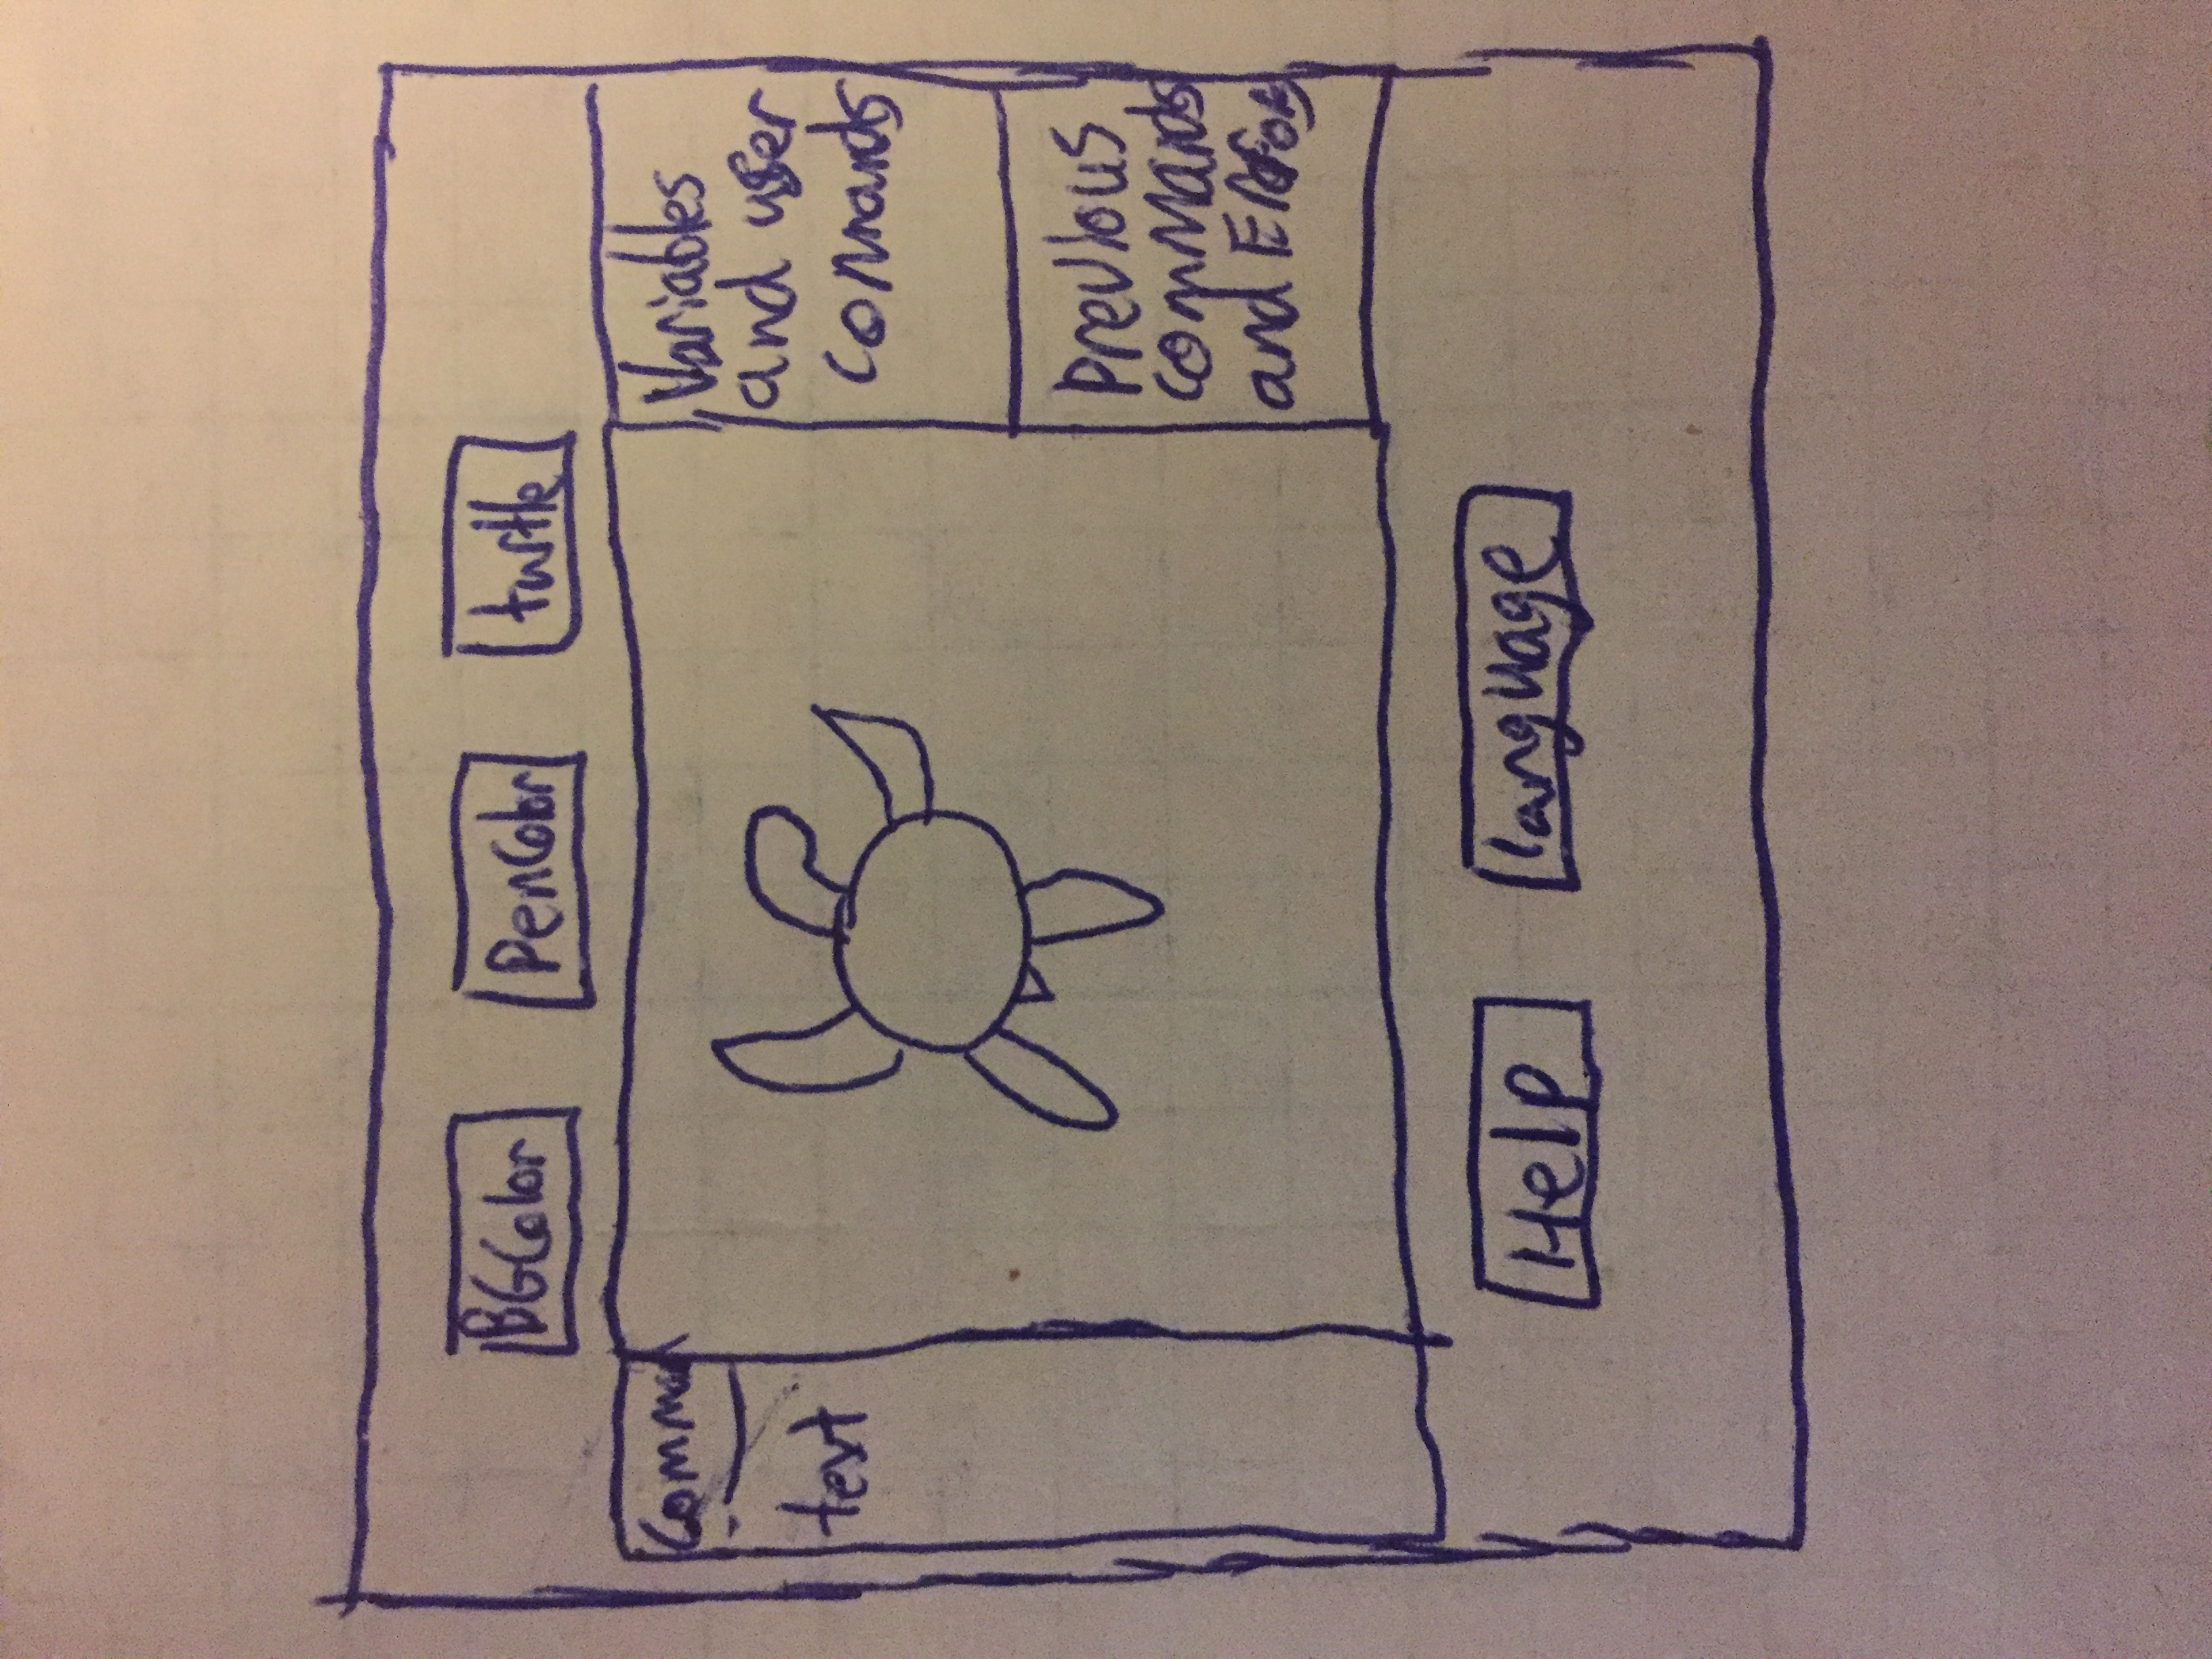 BGColor
PenColor
turtle
Command
text
Variables
and user
commands
Previous
commands
and Errors
Help
language